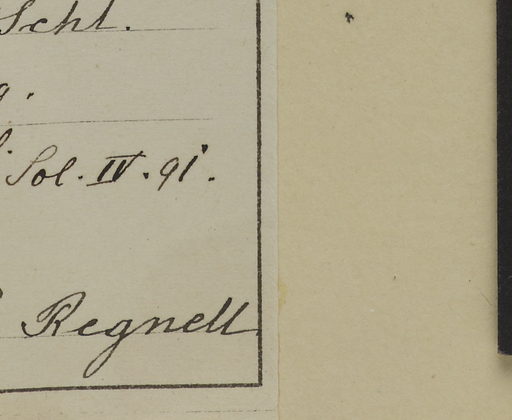 Schl.
g.
Sol. IV. 91.
Regnell